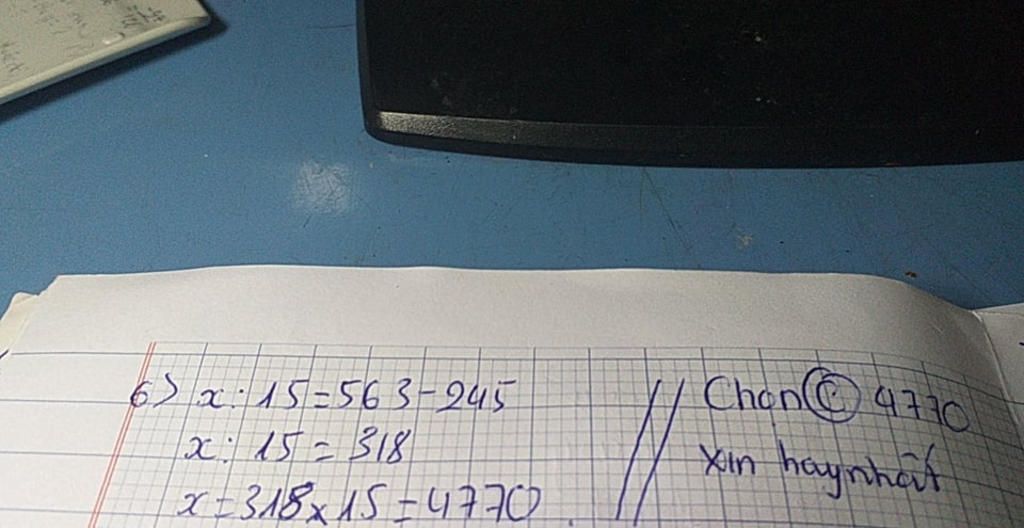 6) x : 15 = 563 - 245
x : 15 = 318
x = 318 x 15 = 4770.
Chọn C 4770
xin hay nhất